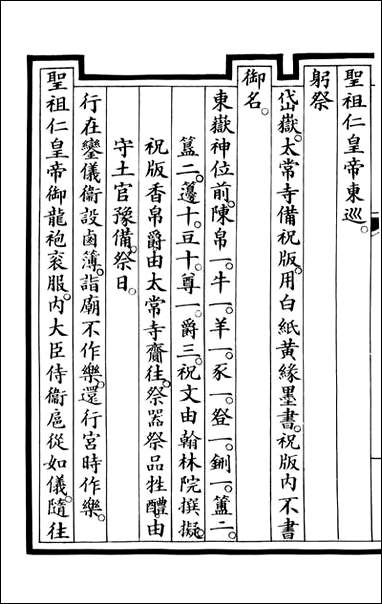 聖祖仁皇帝東巡。
躬祭
岱嶽。太常寺備祝版。用白紙黃緣墨書。祝版内不書
御名。
東嶽神位前。陳帛一。牛一。羊一。豕一。登一。鉶一。簠二。
簋二。籩十。豆十。尊一。爵三。祝文由翰林院撰擬。
祝版香帛爵由太常寺齎往。祭器祭品牲醴。由
守土官豫備。祭日。
行在鑾儀衞設鹵簿。詣廟不作樂。還行宮時作樂。
聖祖仁皇帝御龍袍衮服。内大臣侍衞扈從如儀。隨往